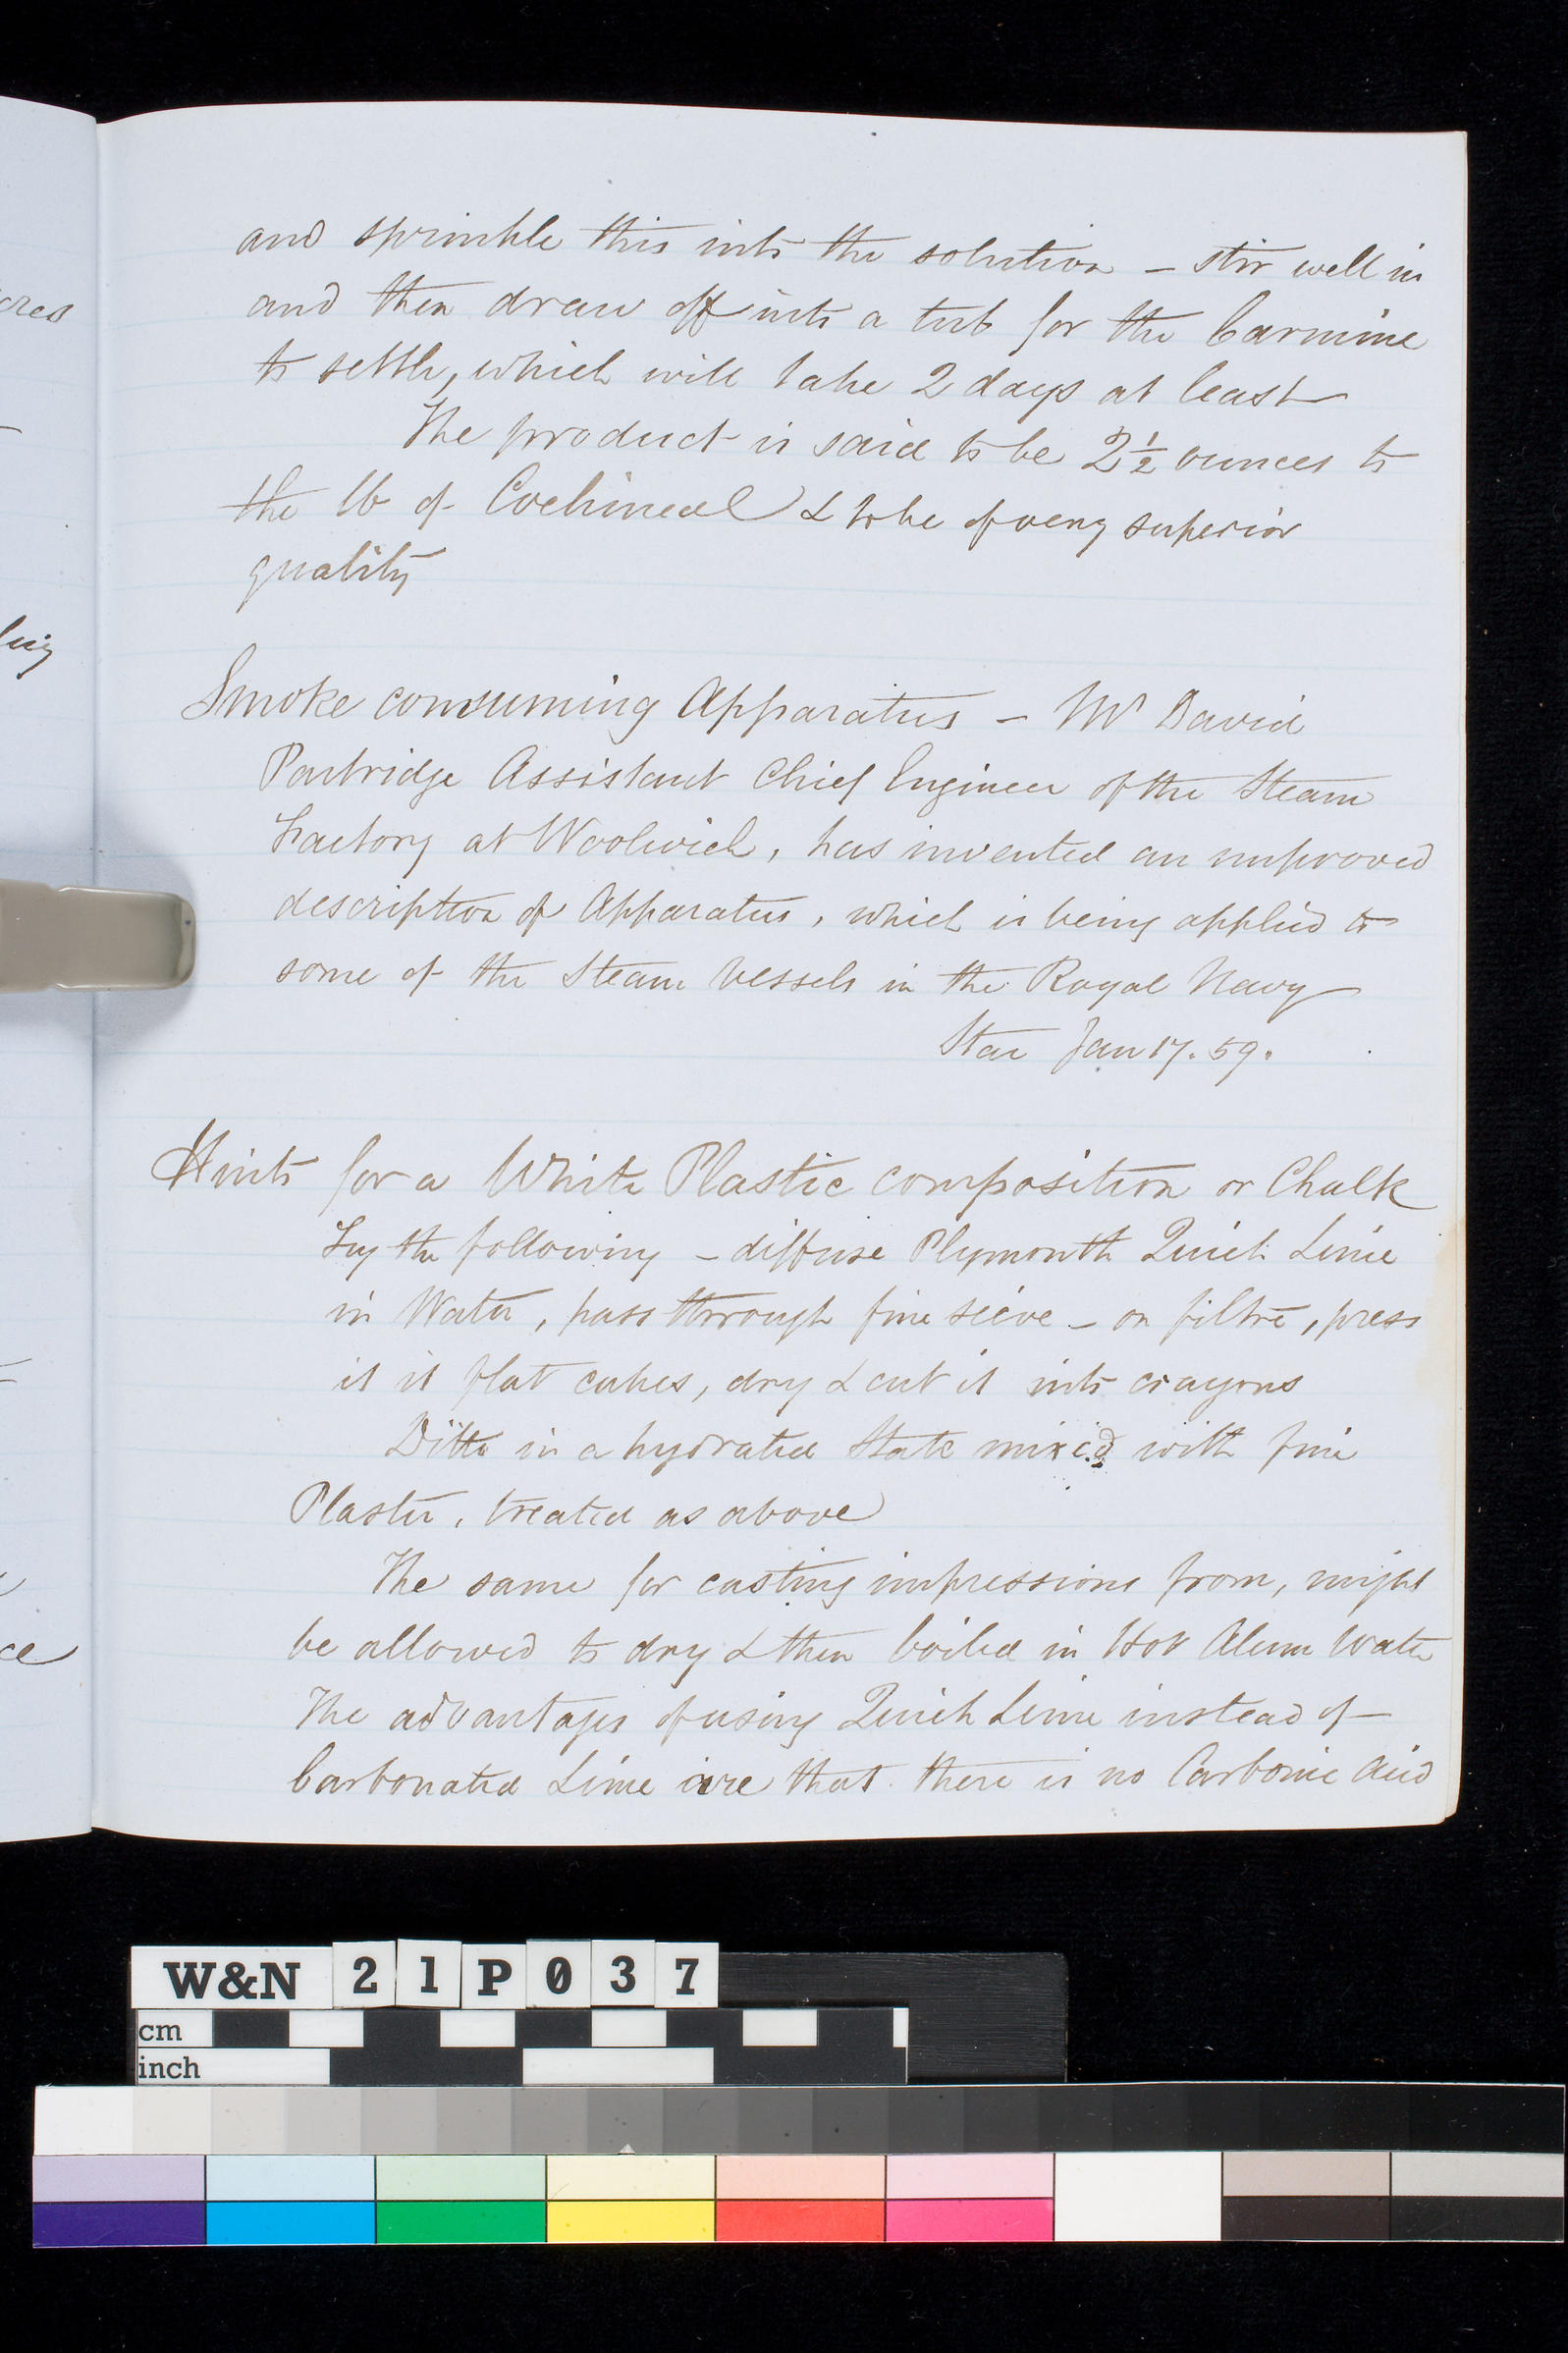 and sprinkle this into the solution – stir well in
and then draw off into a tub for the Carmine
to settle, which will take 2 days at least
The product is said to be 2½ ounces to
the lb of Cochineal & to be of very superior
quality
Smoke consuming Apparatus – Mr David
Partridge Assistant Chief Engineer of the Steam
Factory at Woolwich, has invented an improved
description of Apparatus, which is being applied to
some of the Steam Vessels in the Royal Navy
Star Jan 17. 59.
Hints for a White Plastic composition or Chalk
Try the following – diffuse Plymouth Quick Lime
in Water, pass through fine sieve – or filtre, press
it it flat cakes, dry & cut it into crayons
Ditto in a hydrated State mixed with fine
Plaster, treated as above
The same for casting impressions from, might
be allowed to dry & then boiled in Hot Alum Water
The advantages of using Quick Lime instead of
Carbonated Lime are that there is no Carbonic Acid
cres
ling
ce
W&N 21P037
cm
inch